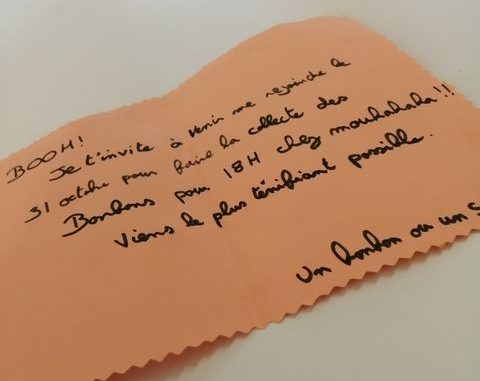 BOOH!
Je t'invite à venir me rejoindre le
31 octobre pour faire la collecte des
Bonbons pour 18H chez mouhahaha!!
Viens le plus ténifiant possible.
Un bonbon ou un s